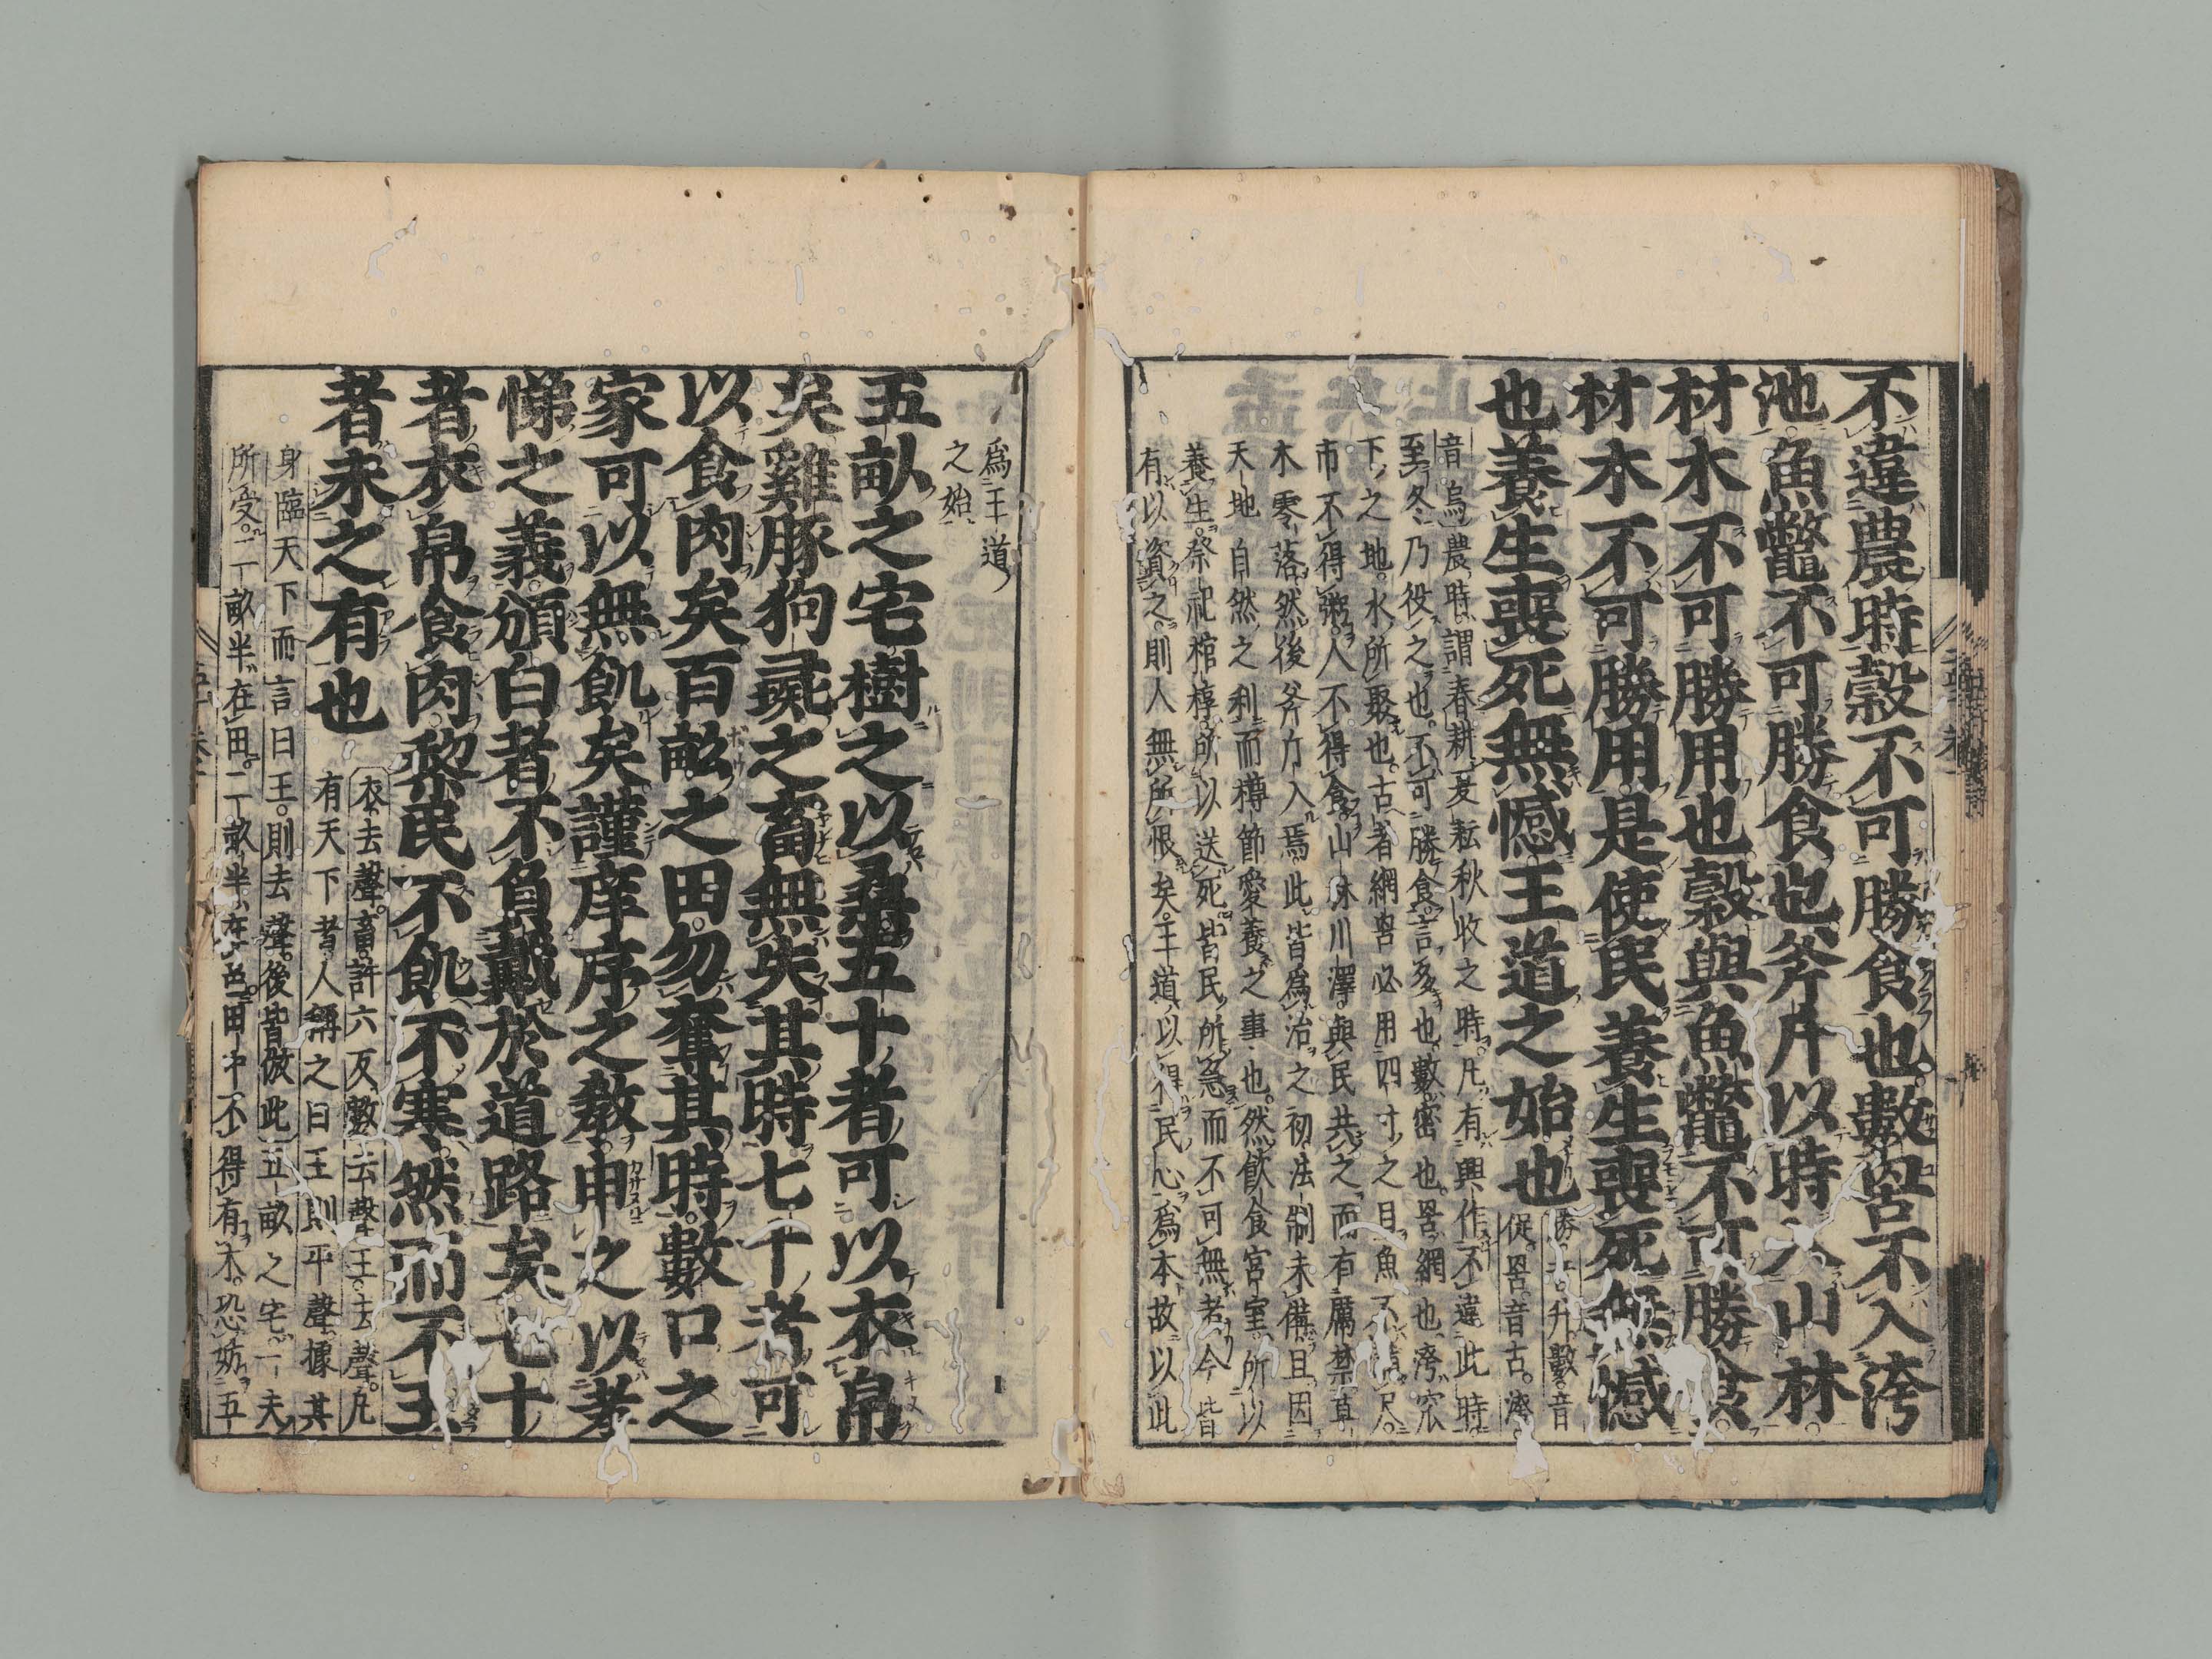 不違農時穀不可勝食也數罟不入洿
池魚鼈不可勝食也斧斤以時入山林
材木不可勝用也穀與魚鼈不可勝食
材木不可勝用是使民養生喪死無憾
也養生喪死無憾王道之始也
勝音升數音
促罟音古洿
音烏農時謂春耕夏耘秋收之時凡有興作不違此時
至冬乃役之也不可勝食言多也數密也罟網也洿窊
下之地水所聚也古者網罟必用四寸之目魚不滿尺
市不得粥人不得食山林川澤與民共之而有厲禁草
木零落然後斧斤入焉此皆爲治之初法制未備且因
天地自然之利而樽節愛養之事也然飲食宮室所以
養生祭祀棺椁所以送死皆民所急而不可無者今皆
有以資之則人無所恨矣王道以得民心爲本故以此
爲王道
之始
五畝之宅樹之以桑五十者可以衣帛
矣雞豚狗彘之畜無失其時七十者可
以食肉矣百畝之田勿奪其時數口之
家可以無飢矣謹庠序之教申之以孝
悌之義頒白者不負戴於道路矣七十
者衣帛食肉黎民不飢不寒然而不王
者未之有也
衣去聲畜許六反數去聲王去聲凡
有天下者人稱之曰王則平聲據其
身臨天下而言曰王則去聲後皆倣此五畝之宅一夫
所受二畝半在田二畝半在邑田中不得有木恐妨五